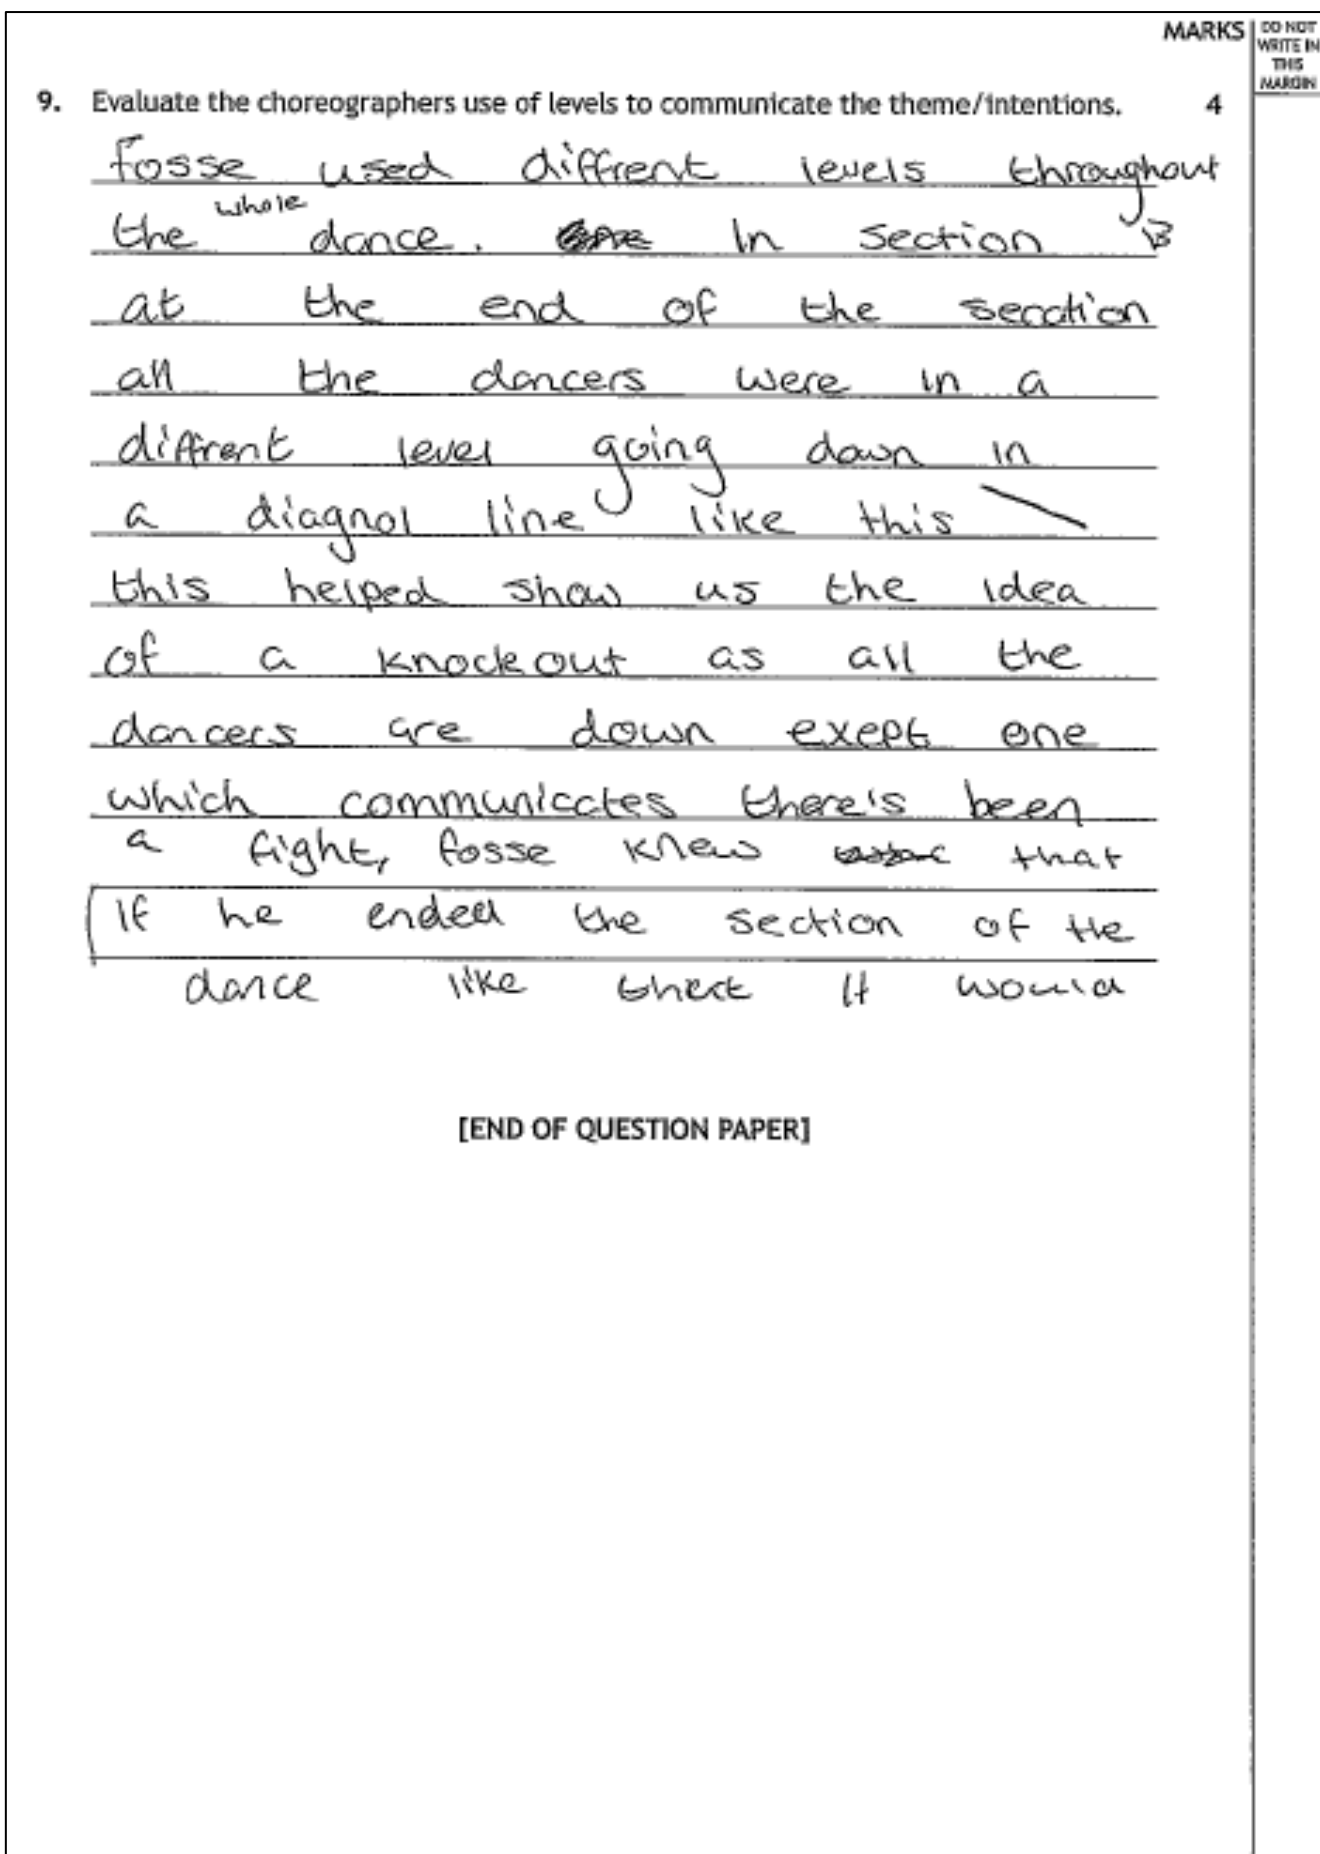 MARKS
DO NOT
WRITE IN
THIS
MARGIN
9. Evaluate the choreographers use of levels to communicate the theme/intentions. 4
Fosse used diffrent levels throughout
the whole dance. In section B
at the end of the secation
all the dancers were in a
diffrent level going down in
a diagnol line like this
this helped show us the idea
of a knockout as all the
dancers are down exept one
which communicates there's been
a fight, fosse knew that
If he ended the section of the
dance like that It would
[END OF QUESTION PAPER]